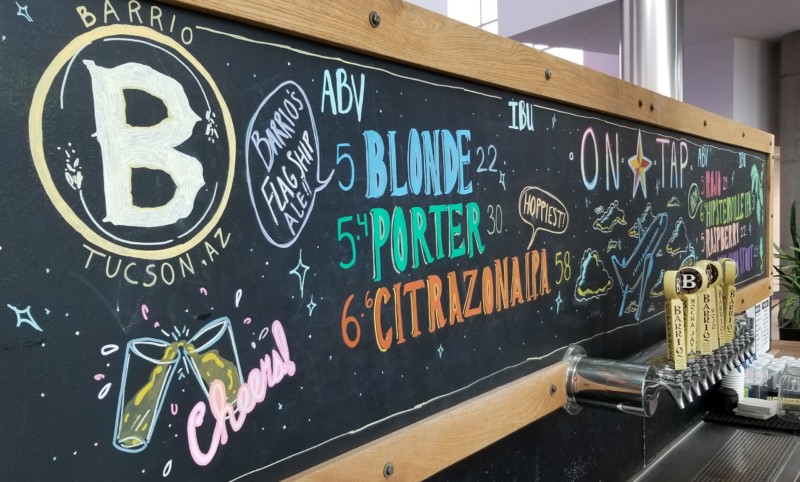 BARRIO
B
TUCSON, AZ
Cheers!
BARRIO'S
FLAGSHIP
ALE!!
ABV
IBU
5 BLONDE 22
5.4 PORTER 30
6.6 CITRAZONA IPA 58
HOPPIEST!
ON TAP
ABV
ROJO
RASPBERRY
B
BARRIO
BARRIO
BARRIO